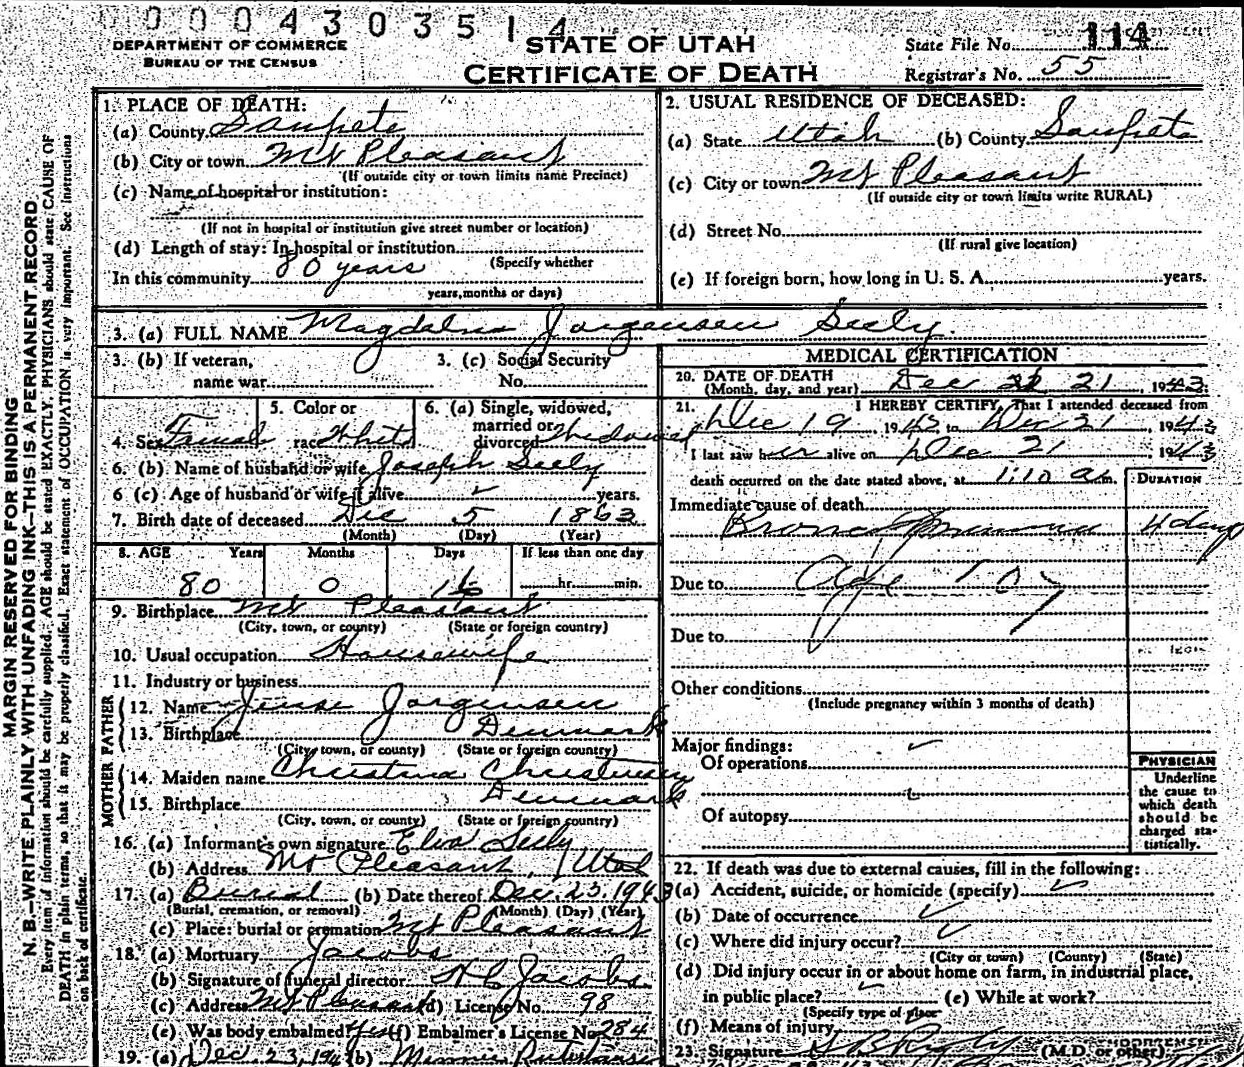 0004303514
DEPARTMENT OF COMMERCE
BUREAU OF THE CENSUS
STATE OF UTAH
CERTIFICATE OF DEATH
State File No. 114
Registrar's No. 55
MARGIN RESERVED FOR BINDING
N. B.—WRITE PLAINLY WITH UNFADING INK—THIS IS A PERMANENT RECORD.
Every item of information should be carefully supplied. AGE should be stated EXACTLY. PHYSICIANS should state CAUSE OF
DEATH in plain terms, so that it may be properly classified. Exact statement of OCCUPATION is very important. See instructions
on back of certificate.
1. PLACE OF DEATH:
(a) County Sanpete
(b) City or town Mt Pleasant
(If outside city or town limits name Precinct)
(c) Name of hospital or institution:
(If not in hospital or institution give street number or location)
(d) Length of stay: In hospital or institution
(Specify whether
In this community 80 years
years, months or days)
2. USUAL RESIDENCE OF DECEASED:
(a) State Utah (b) County Sanpete
(c) City or town Mt Pleasant
(If outside city or town limits write RURAL)
(d) Street No.
(If rural give location)
(e) If foreign born, how long in U. S. A. years.
3. (a) FULL NAME Magdalena Jorgensen Seely
3. (b) If veteran,
name war
3. (c) Social Security
No.
4. Sex Female
5. Color or
race White
6. (a) Single, widowed,
married or
divorced Widowed
6. (b) Name of husband or wife Joseph Seely
6 (c) Age of husband or wife if alive years.
7. Birth date of deceased Dec 5 1863
(Month) (Day) (Year)
8. AGE Years Months Days If less than one day
80 0 16 hr. min.
9. Birthplace Mt Pleasant
(City, town, or county) (State or foreign country)
10. Usual occupation Housewife
11. Industry or business
FATHER
12. Name Jense Jorgensen
13. Birthplace Denmark
(City, town, or county) (State or foreign country)
MOTHER
14. Maiden name Christina Christensen
15. Birthplace Denmark
(City, town, or county) (State or foreign country)
16. (a) Informant's own signature Elva Seely
(b) Address Mt Pleasant, Utah
17. (a) Burial (b) Date thereof Dec. 23, 1943
(Burial, cremation, or removal) (Month) (Day) (Year)
(c) Place: burial or cremation Mt Pleasant
18. (a) Mortuary Jacobs
(b) Signature of funeral director H C Jacobs
(c) Address Mt Pleasant (d) License No. 98
(e) Was body embalmed? Yes (f) Embalmer's License No 284
19. (a) Dec. 23, 194 (b)
MEDICAL CERTIFICATION
20. DATE OF DEATH
(Month, day, and year) Dec 21, 1943
21. I HEREBY CERTIFY, That I attended deceased from
Dec 19 1942 to Dec 21, 1943
I last saw her alive on Dec 21 1943
death occurred on the date stated above, at 1:10 a m.
DURATION
Immediate cause of death
4 days
Due to Age
Due to
Other conditions
(Include pregnancy within 3 months of death)
Major findings:
Of operations
Of autopsy
PHYSICIAN
Underline
the cause to
which death
should be
charged sta-
tistically.
22. If death was due to external causes, fill in the following:
(a) Accident, suicide, or homicide (specify)
(b) Date of occurrence
(c) Where did injury occur?
(City or town) (County) (State)
(d) Did injury occur in or about home on farm, in industrial place,
in public place? (e) While at work?
(Specify type of place
(f) Means of injury
23. Signature (M.D. or other)